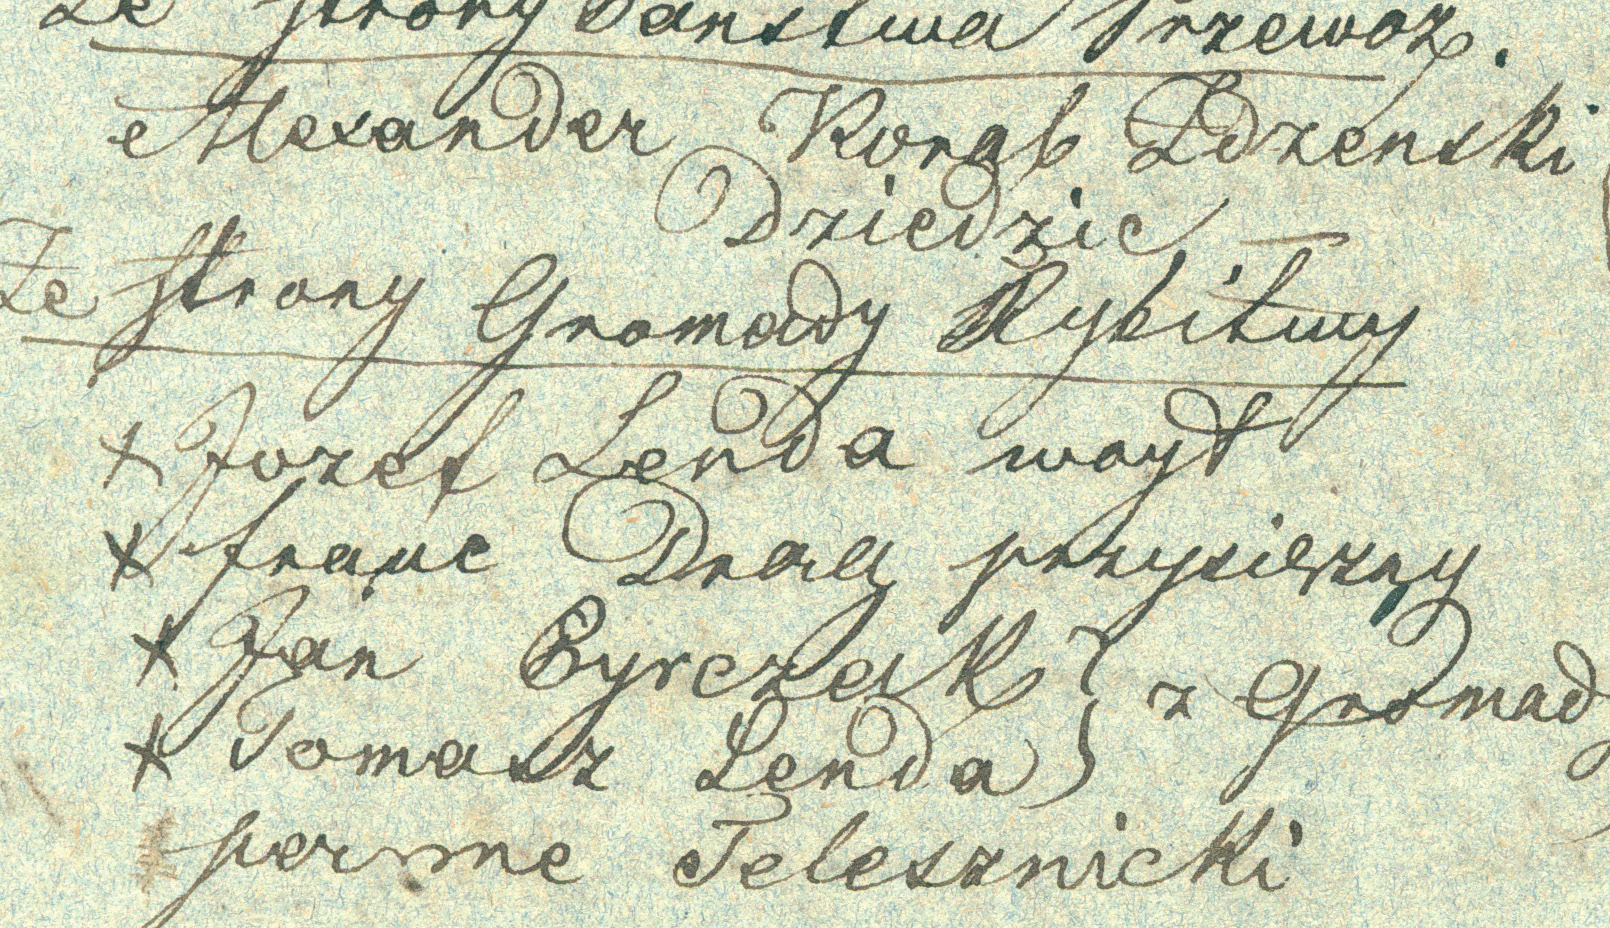 Ze strony Państwa Przewoz.
Alexander Korab Zdzenski
Dziedzic
Ze strony Gromady Rybitwy
+ Jozef Lenda woyt
+ franc Drąg przysiężny
+ Jan Byrczek } z Gromady
+ Tomasz Lenda
per me Telesznicki